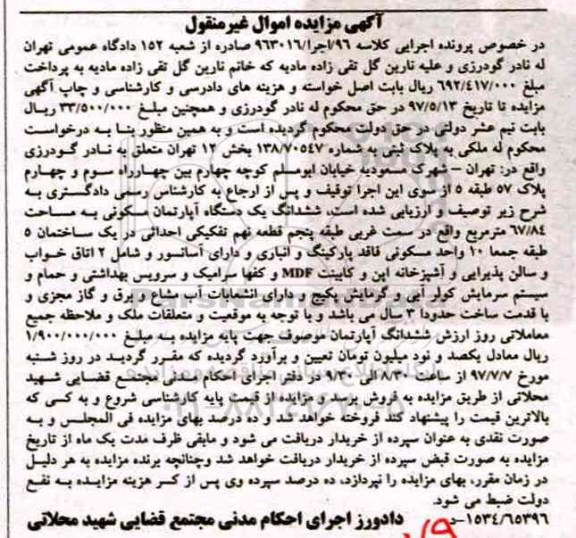 آگهی مزایده اموال غیرمنقول
در خصوص پرونده اجرایی کلاسه ۹۶/اجرا/۹۶۳۰۱۶ صادره از شعبه ۱۵۲ دادگاه عمومی تهران
له نادر گودرزی و علیه نارین گل تقی زاده مادیه که خانم نارین گل تقی زاده مادیه به پرداخت
مبلغ ۶۹۲/۴۱۷/۰۰۰ ریال بابت اصل خواسته و هزینه های دادرسی و کارشناسی و چاپ آگهی
مزایده تا تاریخ ۹۷/۵/۱۳ در حق محکوم له نادر گودرزی و همچنین مبلغ ۳۳/۵۰۰/۰۰۰ ریال
بابت نیم عشر دولتی در حق دولت محکوم گردیده است و به همین منظور بنا به درخواست
محکوم له ملکی به پلاک ثبتی به شماره ۱۳۸/۷۰۵۴۷ بخش ۱۲ تهران متعلق به نادر گودرزی
واقع در: تهران – شهرک مسعودیه خیابان ابومسلم کوچه چهارم بین چهارراه سوم و چهارم
پلاک ۵۷ طبقه ۵ از سوی این اجرا توقیف و پس از ارجاع به کارشناس رسمی دادگستری به
شرح زیر توصیف و ارزیابی شده است، ششدانگ یک دستگاه آپارتمان مسکونی به مساحت
۶۷/۸۴ مترمربع واقع در سمت غربی طبقه پنجم قطعه نهم تفکیکی احداثی در یک ساختمان ۵
طبقه جمعا ۱۰ واحد مسکونی فاقد پارکینگ و انباری و دارای آسانسور و شامل ۲ اتاق خواب
و سالن پذیرایی و آشپزخانه اپن و کابینت MDF و کفها سرامیک و سرویس بهداشتی و حمام و
سیستم سرمایش کولر آبی و گرمایش پکیج و دارای انشعابات آب مشاع و برق و گاز مجزی و
با قدمت ساخت حدودا ۳ سال می باشد و با توجه به موقعیت و متعلقات ملک و ملاحظه جمیع
معاملاتی روز ارزش ششدانگ آپارتمان موصوف جهت پایه مزایده به مبلغ ۱/۹۰۰/۰۰۰/۰۰۰
ریال معادل یکصد و نود میلیون تومان تعیین و برآورد گردیده که مقرر گردید در روز شنبه
مورخ ۹۷/۷/۷ از ساعت ۸/۳۰ الی ۹/۳۰ در دفتر اجرای احکام مدنی مجتمع قضایی شهید
محلاتی از طریق مزایده به فروش برسد و مزایده از قیمت پایه کارشناسی شروع و به کسی که
بالاترین قیمت را پیشنهاد کند فروخته خواهد شد و ده درصد بهای مزایده فی المجلس و به
صورت نقدی به عنوان سپرده از خریدار دریافت می شود و مابقی ظرف مدت یک ماه از تاریخ
مزایده به صورت قبض سپرده از خریدار دریافت خواهد شد وچنانچه برنده مزایده به هر دلیل
در زمان مقرر، بهای مزایده را نپردازد، ده درصد سپرده وی پس از کسر هزینه مزایده به نفع
دولت ضبط می شود.
۱۵۳۴/۶۵۳۹۶-د دادورز اجرای احکام مدنی مجتمع قضایی شهید محلاتی